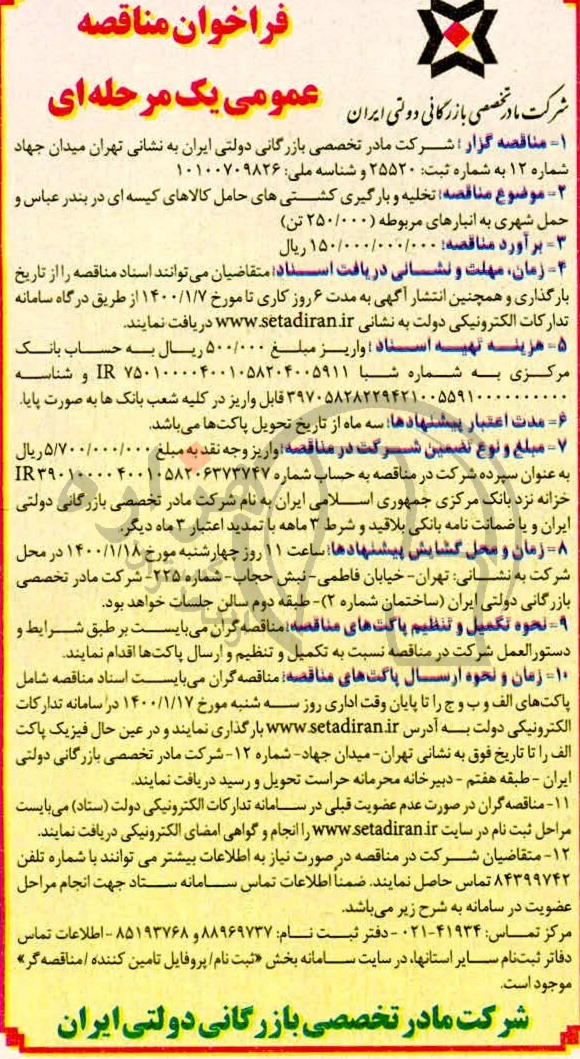 فراخوان مناقصه
عمومی یک مرحله ای
شرکت مادر تخصصی بازرگانی دولتی ایران
۱- مناقصه گزار: شرکت مادر تخصصی بازرگانی دولتی ایران به نشانی تهران میدان جهاد
شماره ۱۲ به شماره ثبت: ۲۵۵۲۰ و شناسه ملی: ۱۰۱۰۰۷۰۹۸۲۶
۲- موضوع مناقصه: تخلیه و بارگیری کشتی های حامل کالاهای کیسه ای در بندر عباس و
حمل شهری به انبارهای مربوطه (۲۵۰/۰۰۰ تن)
۳- برآورد مناقصه: ۱۵۰/۰۰۰/۰۰۰/۰۰۰ ریال
۴- زمان، مهلت و نشانی دریافت اسناد: متقاضیان می‌توانند اسناد مناقصه را از تاریخ
بارگذاری و همچنین انتشار آگهی به مدت ۶ روز کاری تا مورخ ۱۴۰۰/۱/۷ از طریق درگاه سامانه
تدارکات الکترونیکی دولت به نشانی www.setadiran.ir دریافت نمایند.
۵- هزینه تهیه اسناد: واریز مبلغ ۵۰۰/۰۰۰ ریال به حساب بانک
مرکزی به شماره شبا IR ۷۵۰۱۰۰۰۰۴۰۰۱۰۵۸۲۰۴۰۰۵۹۱۱ و شناسه
۳۹۷۰۵۸۲۸۲۲۹۴۲۱۰۰۵۵۹۱۰۰۰۰۰۰۰۰۰۰ قابل واریز در کلیه شعب بانک ها به صورت پایا.
۶- مدت اعتبار پیشنهادها: سه ماه از تاریخ تحویل پاکت‌ها می‌باشد.
۷- مبلغ و نوع تضمین شرکت در مناقصه: واریز وجه نقد به مبلغ ۵/۷۰۰/۰۰۰/۰۰۰ ریال
به عنوان سپرده شرکت در مناقصه به حساب شماره IR۳۹۰۱۰۰۰۰۴۰۰۱۰۵۸۲۰۶۳۷۳۷۴۷
خزانه نزد بانک مرکزی جمهوری اسلامی ایران به نام شرکت مادر تخصصی بازرگانی دولتی
ایران و یا ضمانت نامه بانکی بلاقید و شرط ۳ ماهه با تمدید اعتبار ۳ ماه دیگر.
۸- زمان و محل گشایش پیشنهادها: ساعت ۱۱ روز چهارشنبه مورخ ۱۴۰۰/۱/۱۸ در محل
شرکت به نشانی: تهران- خیابان فاطمی- نبش حجاب- شماره ۲۲۵- شرکت مادر تخصصی
بازرگانی دولتی ایران (ساختمان شماره ۲)- طبقه دوم سالن جلسات خواهد بود.
۹- نحوه تکمیل و تنظیم پاکت‌های مناقصه: مناقصه‌گران می‌بایست بر طبق شرایط و
دستورالعمل شرکت در مناقصه نسبت به تکمیل و تنظیم و ارسال پاکت‌ها اقدام نمایند.
۱۰- زمان و نحوه ارسال پاکت‌های مناقصه: مناقصه‌گران می‌بایست اسناد مناقصه شامل
پاکت‌های الف و ب و ج را تا پایان وقت اداری روز سه شنبه مورخ ۱۴۰۰/۱/۱۷ در سامانه تدارکات
الکترونیکی دولت به آدرس www.setadiran.ir بارگذاری نمایند و در عین حال فیزیک پاکت
الف را تا تاریخ فوق به نشانی تهران- میدان جهاد- شماره ۱۲- شرکت مادر تخصصی بازرگانی دولتی
ایران - طبقه هفتم - دبیرخانه محرمانه حراست تحویل و رسید دریافت نمایند.
۱۱- مناقصه‌گران در صورت عدم عضویت قبلی در سامانه تدارکات الکترونیکی دولت (ستاد) می‌بایست
مراحل ثبت نام در سایت www.setadiran.ir را انجام و گواهی امضای الکترونیکی دریافت نمایند.
۱۲- متقاضیان شرکت در مناقصه در صورت نیاز به اطلاعات بیشتر می توانند با شماره تلفن
۸۴۳۹۹۷۴۲ تماس حاصل نمایند. ضمناً اطلاعات تماس سامانه ستاد جهت انجام مراحل
عضویت در سامانه به شرح زیر می‌باشد.
مرکز تماس: ۴۱۹۳۴-۰۲۱ - دفتر ثبت نام: ۸۸۹۶۹۷۳۷ و ۸۵۱۹۳۷۶۸ - اطلاعات تماس
دفاتر ثبت‌نام سایر استانها، در سایت سامانه بخش «ثبت نام/پروفایل تامین کننده/مناقصه‌گر»
موجود است.
شرکت مادر تخصصی بازرگانی دولتی ایران